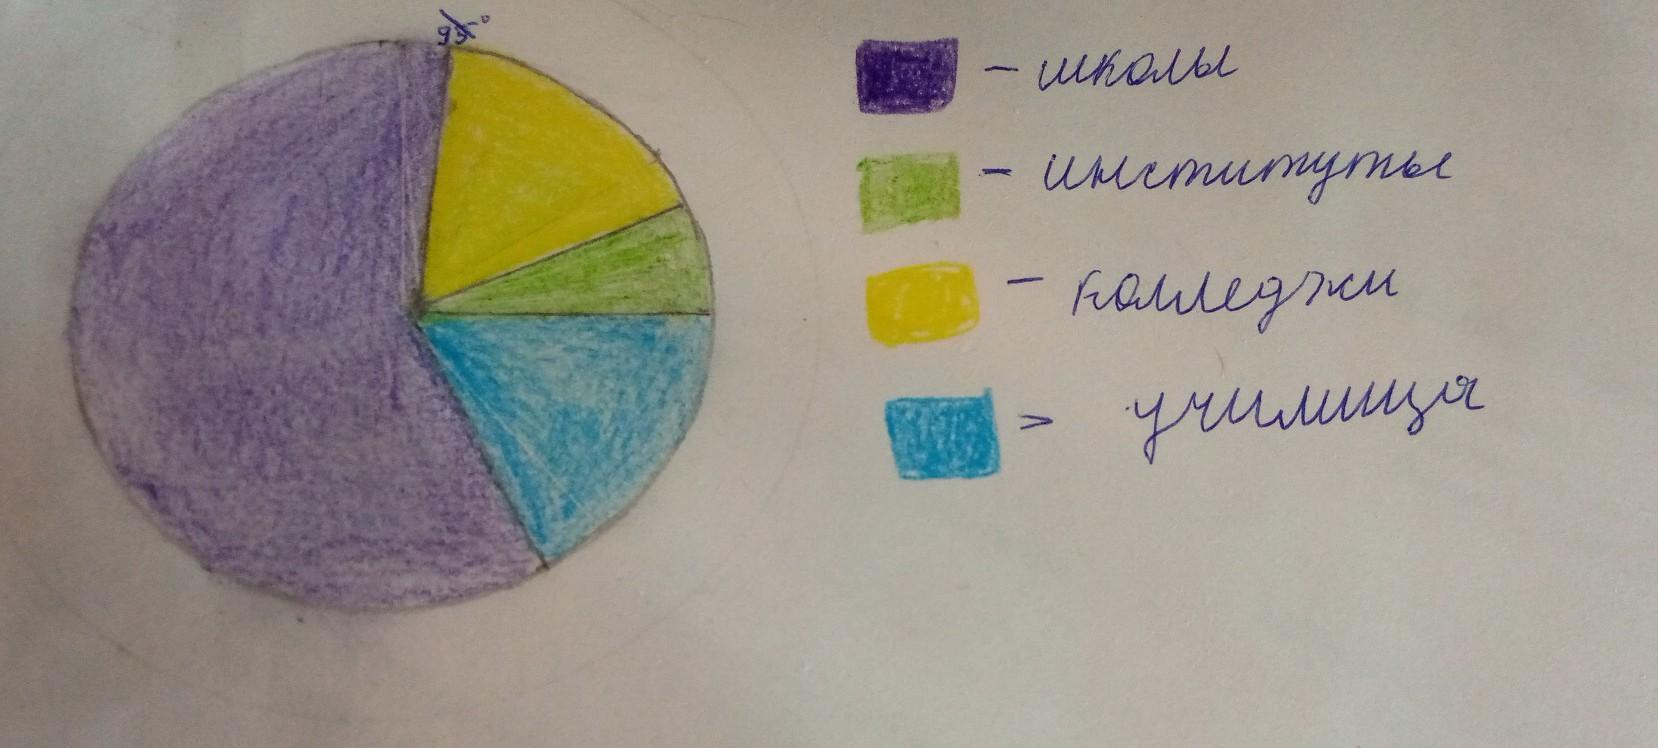 95°
- школы
- институты
- колледжи
- училища